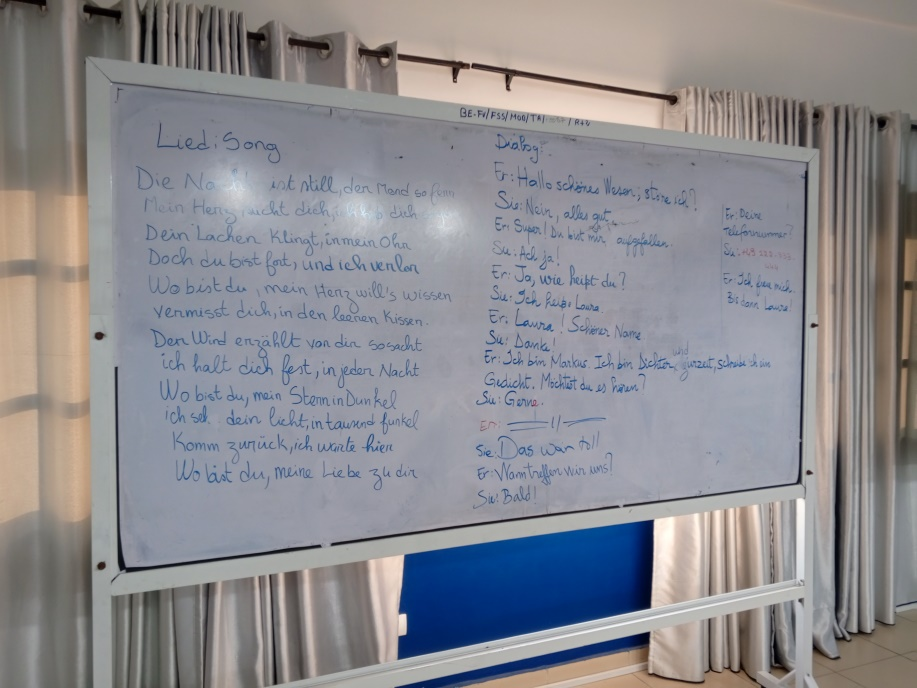 BE-FV/FSS/MOD/TA/
Lied: Song
Die Nacht ist still, der Mond so fern
Mein Herz sucht dich, dich
Dein Lachen klingt, in mein Ohr
Doch du bist fort, und ich verlor
Wo bist du, mein Herz will's wissen
vermisst dich, in den leeren Kissen.
Der Wind erzählt von dir so sacht
ich halt dich fest, in jeder Nacht
Wo bist du, mein Stern in Dunkel
ich seh dein licht, in tausend funkel
Komm zurück, ich warte hier
Wo bist du, meine Liebe zu dir
Dialog:
Er: Hallo schönes Wesen; störe ich?
Sie: Nein, alles gut
Er: Super! Du bist mir aufgefallen.
Sie: Ach ja!
Er: Ja, wie heißt du?
Sie: Ich heiße Laura.
Er: Laura! Schöner Name
Sie: Danke!
Er: Ich bin Markus. Ich bin Dichter und zurzeit, schreibe ich ein
Gedicht. Möchtest du es hören?
Sie: Gerne.
Er: — // —
Sie: Das war toll
Er: Wann treffen wir uns?
Sie: Bald!
Er: Deine
Telefonnummer?
Sie:
Er: Ich freu mich.
Bis dann Laura!